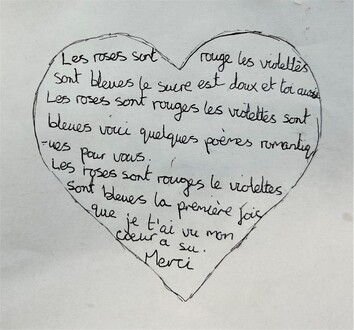 Les roses sont rouge les violettes
sont bleues le sucre est doux et toi aussi
Les roses sont rouges les violettes sont
bleues voici quelques poèmes romantiq
-ues pour vous.
Les roses sont rouges le violettes
sont bleues la première fois
que je t'ai vu mon
coeur a su.
Merci